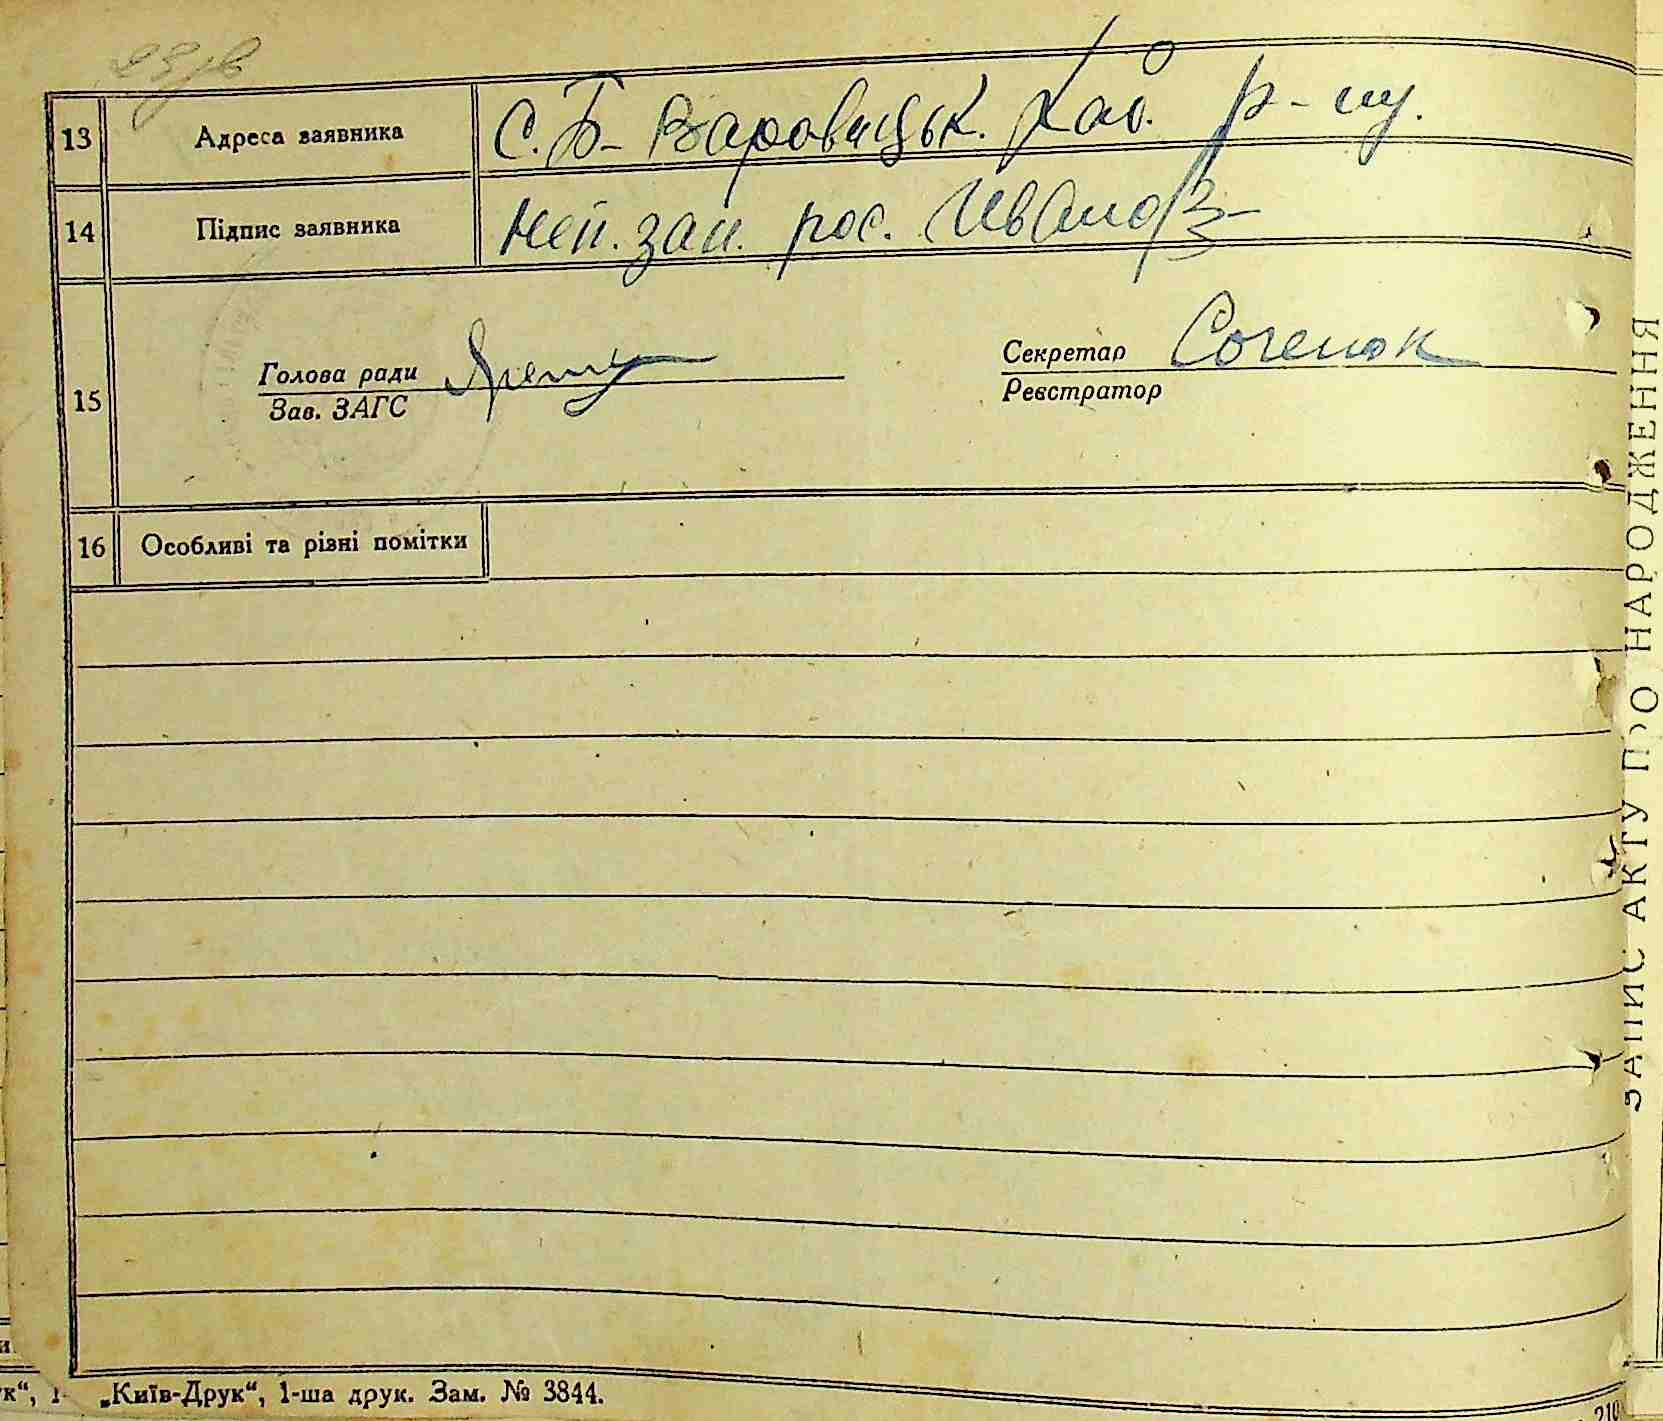 13 Адреса заявника С. Б-Варовицьк. Каб. р-ну.
14 Підпис заявника Неп. зап. рос. Иванов
15 Голова ради
Зав. ЗАГС
Секретар Соченок
Реєстратор
16 Особливі та різні помітки
ЗАПИС АКТУ ПРО НАРОДЖЕННЯ
„Київ-Друк“, 1-ша друк. Зам. № 3844.